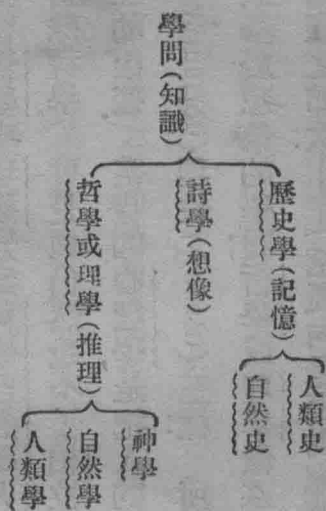 學問(知識)
歷史學(記憶)
人類史
自然史
詩學(想像)
哲學或理學(推理)
神學
自然學
人類學